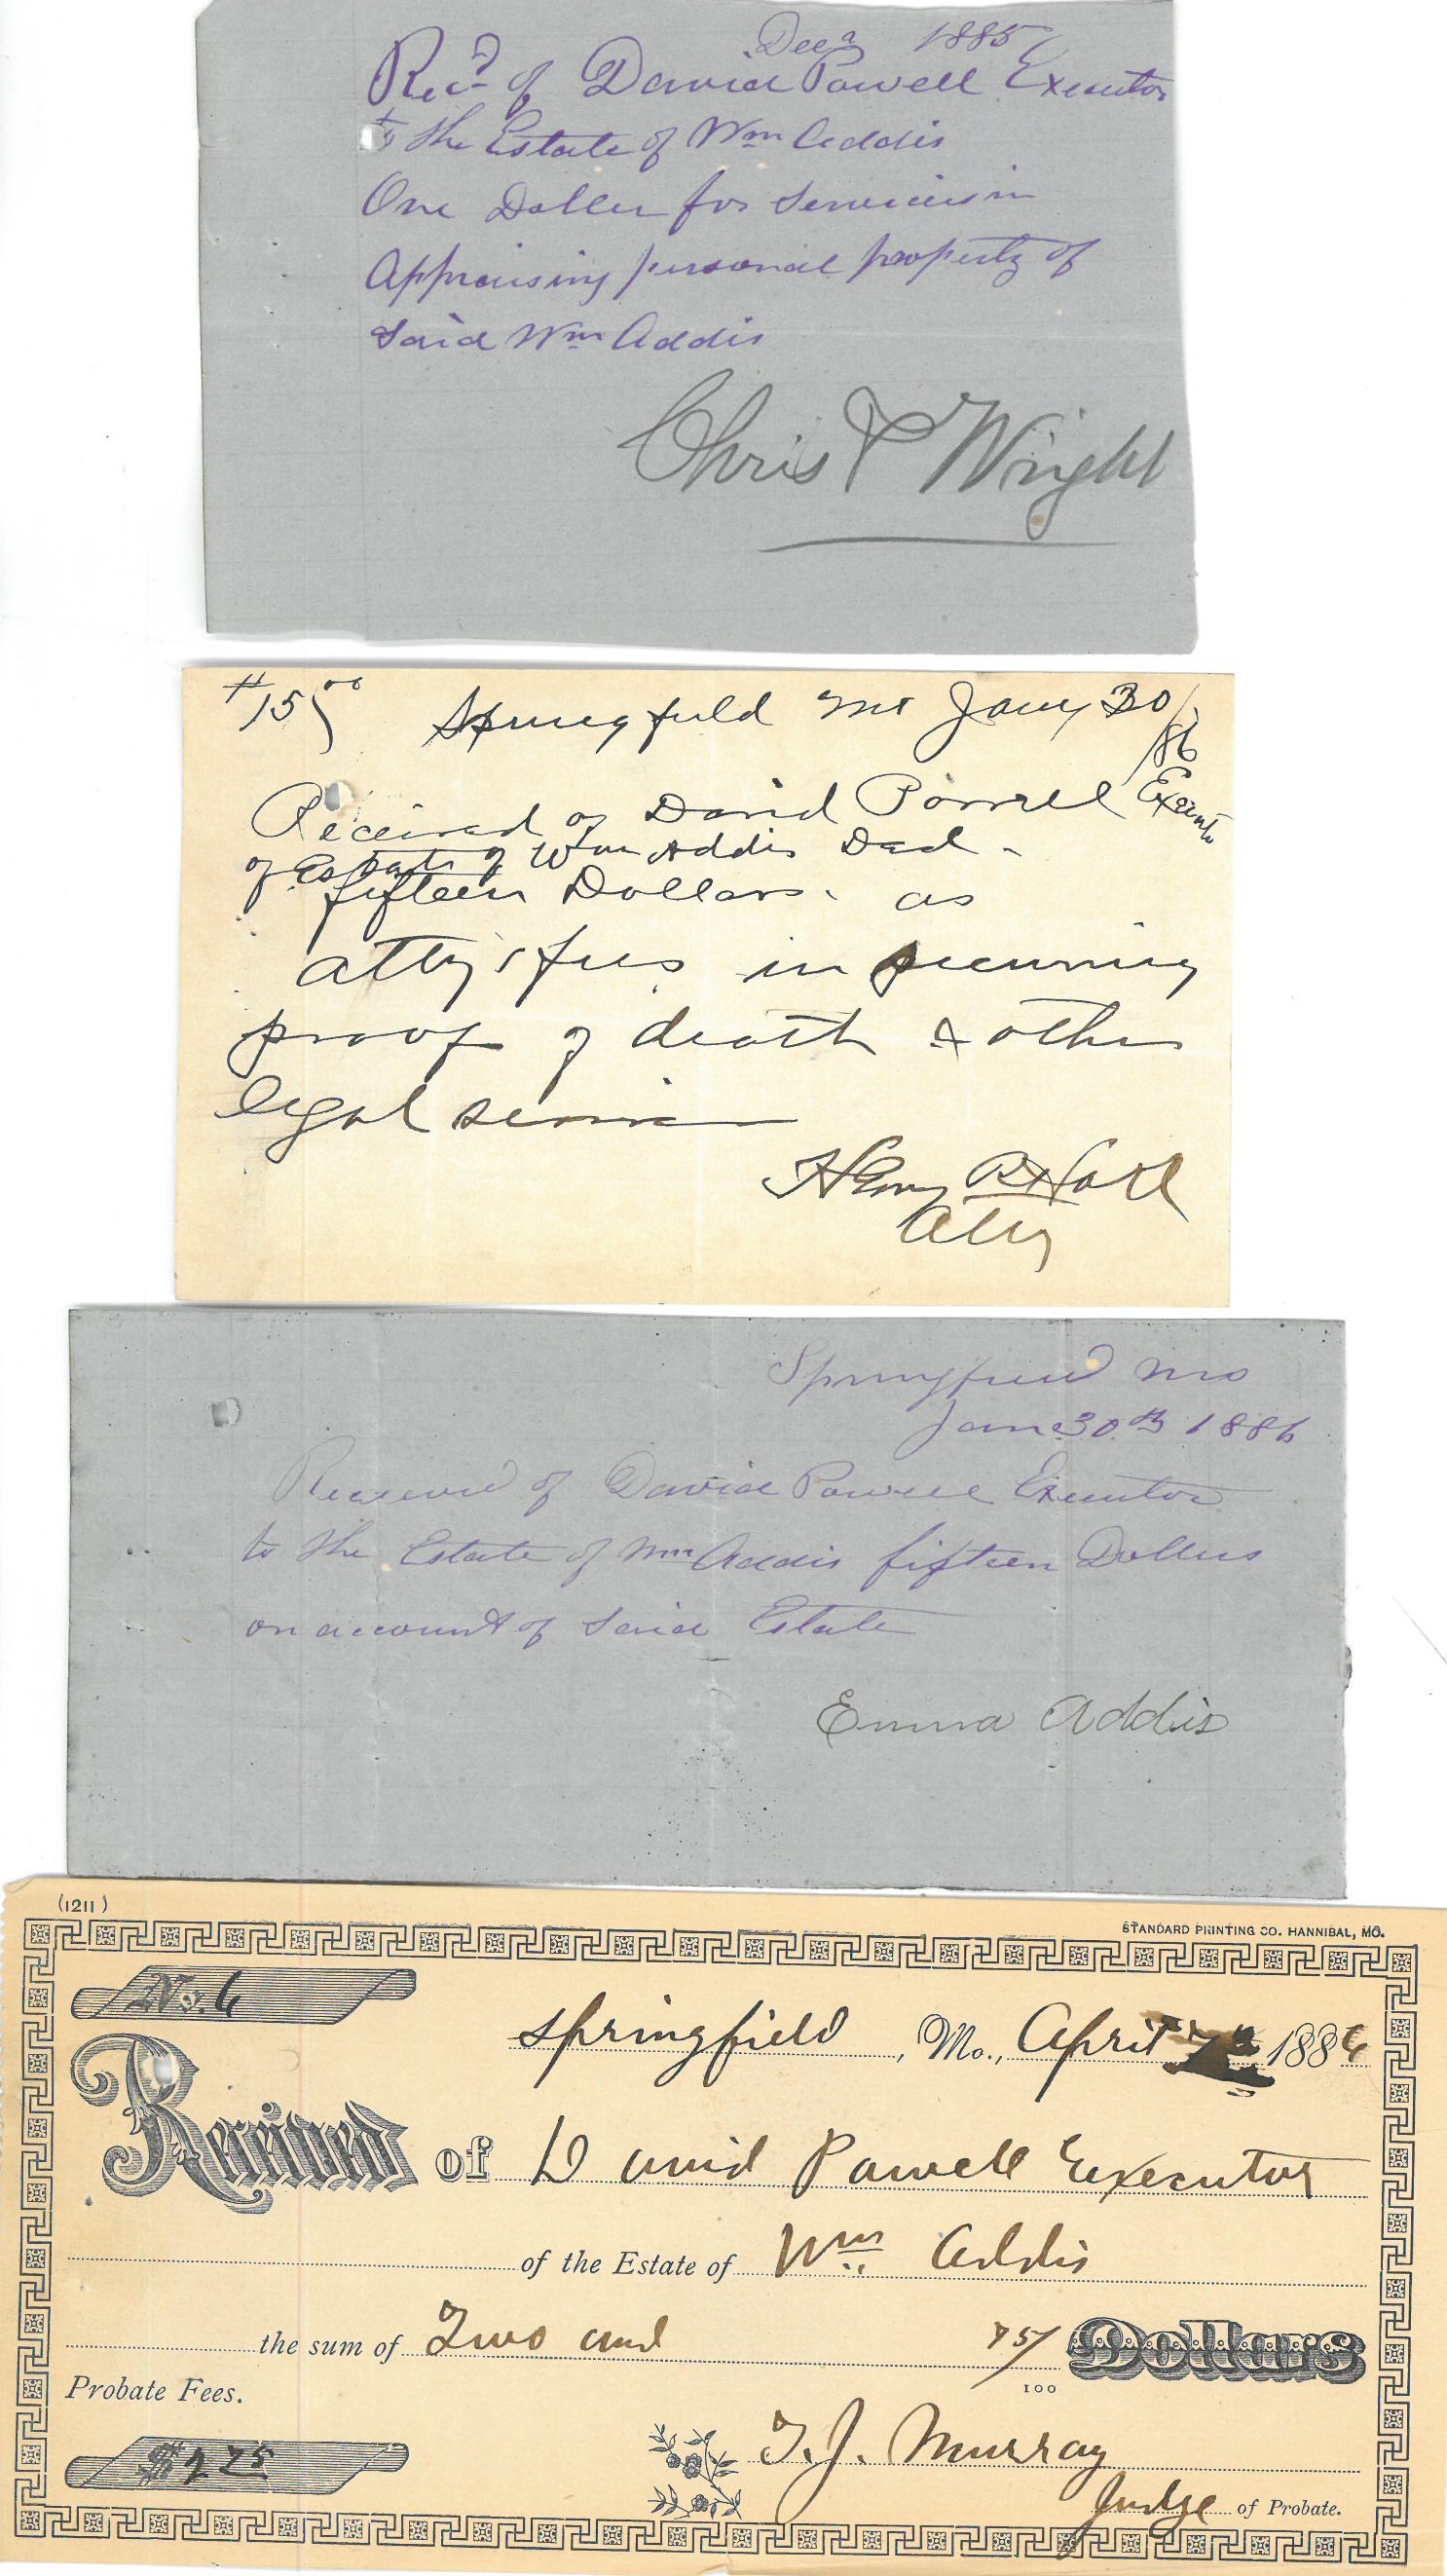 Dec 1885
Rec'd of David Powell Executor
to the Estate of Wm Addis
One Doller for Services in
Appraising personal property of
Said Wm Addis
Chris Wright
$15 00 Springfield Mo Jany 30/86
Received of David Powell Executor
of Estate of Wm Addis Decd -
fifteen Dollars. as
atty's fees in securing
proof of death & other
legal service
Henry
Atty
Springfield Mo
Jan 30th 1886
Received of David Powell Executor
to the Estate of Wm Addis fifteen Dollers
on account of Said Estate
Emma Addis
(1211)
STANDARD PRINTING CO. HANNIBAL, MO.
No. 6
Springfield, Mo., April 7th 1886
Received of David Powell Executor
of the Estate of Wm Addis
the sum of Two and 75/100 Dollars
Probate Fees.
$2 75
T. J. Murray
Judge of Probate.